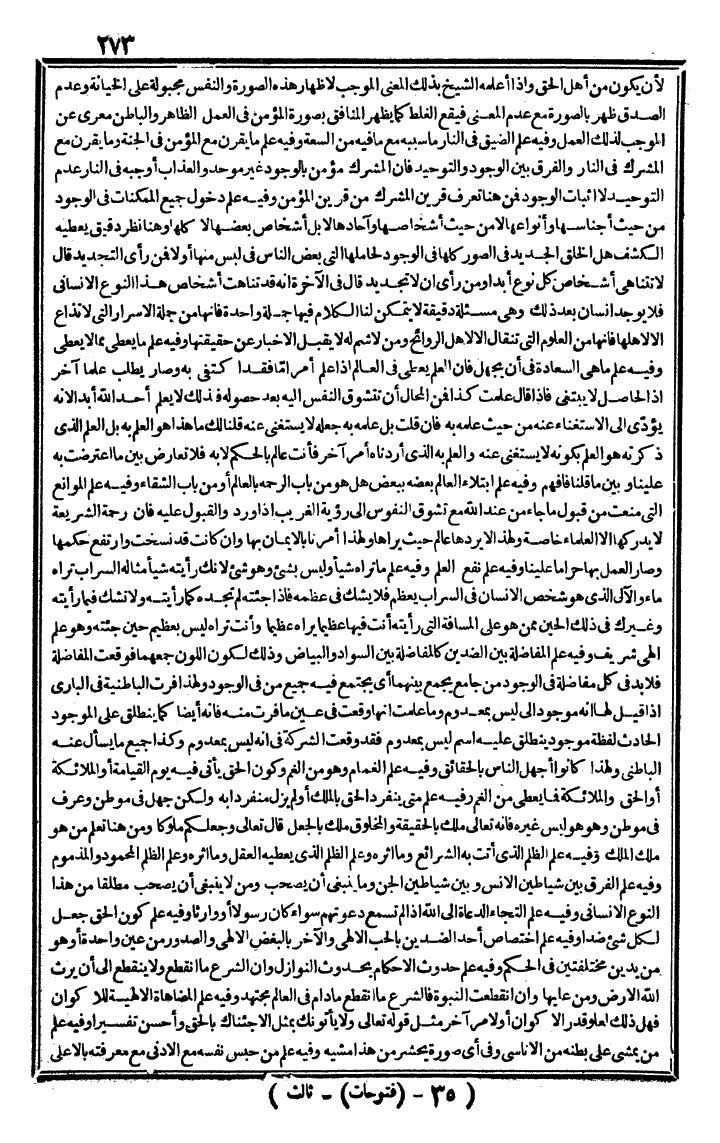 ٢٧٣
لأن يكون من أهل الحق واذا أعلمه الشيخ بذلك المعنى الموجب لاظهار هذه الصورة والنفس مجبولة على الخيانة وعدم
الصدق ظهر بالصورة مع عدم المعنى فيقع الغلط كما يظهر المنافق بصورة المؤمن فى العمل الظاهر والباطن معرى عن
الموجب لذلك العمل وفيه علم الضيق فى النار ما سببه مع ما فيه من السعة وفيه علم ما يقرن مع المؤمن فى الجنة وما يقرن مع
المشرك فى النار والفرق بين الوجود والتوحيد فان المشرك مؤمن بالوجود غير موحد والعذاب أوجبه فى النار عدم
التوحيد لا اثبات الوجود فمن هنا تعرف قرين المشرك من قرين المؤمن وفيه علم دخول جميع الممكنات فى الوجود
من حيث أجناسها وأنواعها لا من حيث أشخاصها وآحادها لا بل أشخاص بعضها لا كلها وهنا نظر دقيق يعطيه
الكشف هل الخلق الجديد فى الصور كلها فى الوجود لحاملها التى بعض الناس فى لبس منها أولا فمن رأى التجديد قال
لا تتناهى أشخاص كل نوع أبدا ومن رأى ان لا تجديد قال فى الآخرة انه قد تناهت أشخاص هذا النوع الانسانى
فلا يوجد انسان بعد ذلك وهى مسئلة دقيقة لا يتمكن لنا الكلام فيها جملة واحدة فانها من جملة الاسرار التى لا تذاع
الا لاهلها فانها من العلوم التى تنقال الا لاهل الروائح ومن لا شم له لا يقبل الاخبار عن حقيقتها وفيه علم ما يعطى مما لا يعطى
وفيه علم ما هى السعادة فى أن يجهل فان العلم يعطى فى العالم اذا علم أمرا ما فقد اكتفى به وصار يطلب علما آخر
اذ الحاصل لا يبتغى فاذا قال علمت كذا فمن المحال أن تتشوق النفس اليه بعد حصوله فذلك لا يعلم أحد الله أبدا لانه
يؤدى الى الاستغناء عنه من حيث علمه به فان قلت بل علمه به جعله لا يستغنى عنه قلنا لك ما هذا هو العلم به بل العلم الذى
ذكرته هو العلم بكونه لا يستغنى عنه والعلم به الذى أردناه أمر آخر فأنت عالم بالحكم لا به فلا تعارض بين ما اعترضت به
علينا وبين ما قلنا فافهم وفيه علم ابتلاء العالم بعضه ببعض هل هو من باب الرحمه بالعالم أو من باب الشقاء وفيه علم الموانع
التى منعت من قبول ما جاء من عند الله مع تشوق النفوس الى رؤية الغريب اذا ورد والقبول عليه فان رحمة الشريعة
لا يدركها الا العلماء خاصة ولهذا لا يردها عالم حيث يراها ولهذا أمرنا بالايمان بها وان كانت قد نسخت وارتفع حكمها
وصار العمل بها حراما علينا وفيه علم نفع العلم وفيه علم ما تراه شيأ وليس بشئ وهو شئ لانك رأيته شيأ مثاله السراب تراه
ماء والآل الذى هو شخص الانسان فى السراب يعظم فلا يشك فى عظمه فاذا جئته لم تجده كما رأيته ولا تشك فيما رأيته
وغيرك فى ذلك الحين ممن هو على المسافة التى رأيته أنت فيها عظيما يراه عظيما وأنت تراه ليس بعظيم حين جئته وهو علم
الهى شريف وفيه علم المفاضلة بين الضدين كالمفاضلة بين السواد والبياض وذلك لكون اللون جمعهما فوقعت المفاضلة
فلا بد فى كل مفاضلة فى الوجود من جامع يجمع بينهما أى يجتمع فيه جميع من فى الوجود ولهذا فرت الباطنية فى البارى
اذا قيل لها انه موجود الى ليس بمعدوم وما علمت انها وقعت فى عين ما فرت منه فانه أيضا كما ينطلق على الموجود
الحادث لفظة موجود ينطلق عليه اسم ليس بمعدوم فقد وقعت الشركة فى انه ليس بمعدوم وكذا جميع ما يسأل عنه
الباطنى ولهذا كانوا أجهل الناس بالحقائق وفيه علم الغمام وهو من الغم وكون الحق يأتى فيه يوم القيامة أو الملائكة
أو الحق والملائكة فما يعطى من الغم وفيه علم متى ينفرد الحق بالملك أو لم يزل منفردا به ولكن جهل فى موطن وعرف
فى موطن وهو هو ليس غيره فانه تعالى ملك بالحقيقة والمخلوق ملك بالجعل قال تعالى وجعلكم ملوكا ومن هنا تعلم من هو
ملك الملك وفيه علم الظلم الذى أتت به الشرائع وما اثره وعلم الظلم الذى يعطيه العقل وما اثره وعلم الظلم المحمود والمذموم
وفيه علم الفرق بين شياطين الانس وبين شياطين الجن وما ينبغى أن يصحب ومن لا ينبغى أن يصحب مطلقا من هذا
النوع الانسانى وفيه علم التجاء الدعاة الى الله اذا لم تسمع دعوتهم سواء كان رسولا أو وارثا وفيه علم كون الحق جعل
لكل شئ ضدا وفيه علم اختصاص أحد الضدين بالحب الالهى والآخر بالبغض الالهى والصدور من عين واحدة أو هو
من يدين مختلفتين فى الحكم وفيه علم حدوث الاحكام بحدوث النوازل وان الشرع ما انقطع ولا ينقطع الى أن يرث
الله الارض ومن عليها وان انقطعت النبوة فالشرع ما انقطع ما دام فى العالم مجتهد وفيه علم المضاهاة الالهية للاكوان
فهل ذلك لعلو قدر الاكوان أو لامر آخر مثل قوله تعالى ولا يأتونك بمثل الا جئناك بالحق وأحسن تفسيرا وفيه علم
من يمشى على بطنه من الاناسى وفى أى صورة يحشر من هذا مشيه وفيه علم من حبس نفسه مع الادنى مع معرفته بالاعلى
( ٣٥ - (فتوحات) - ثالث )